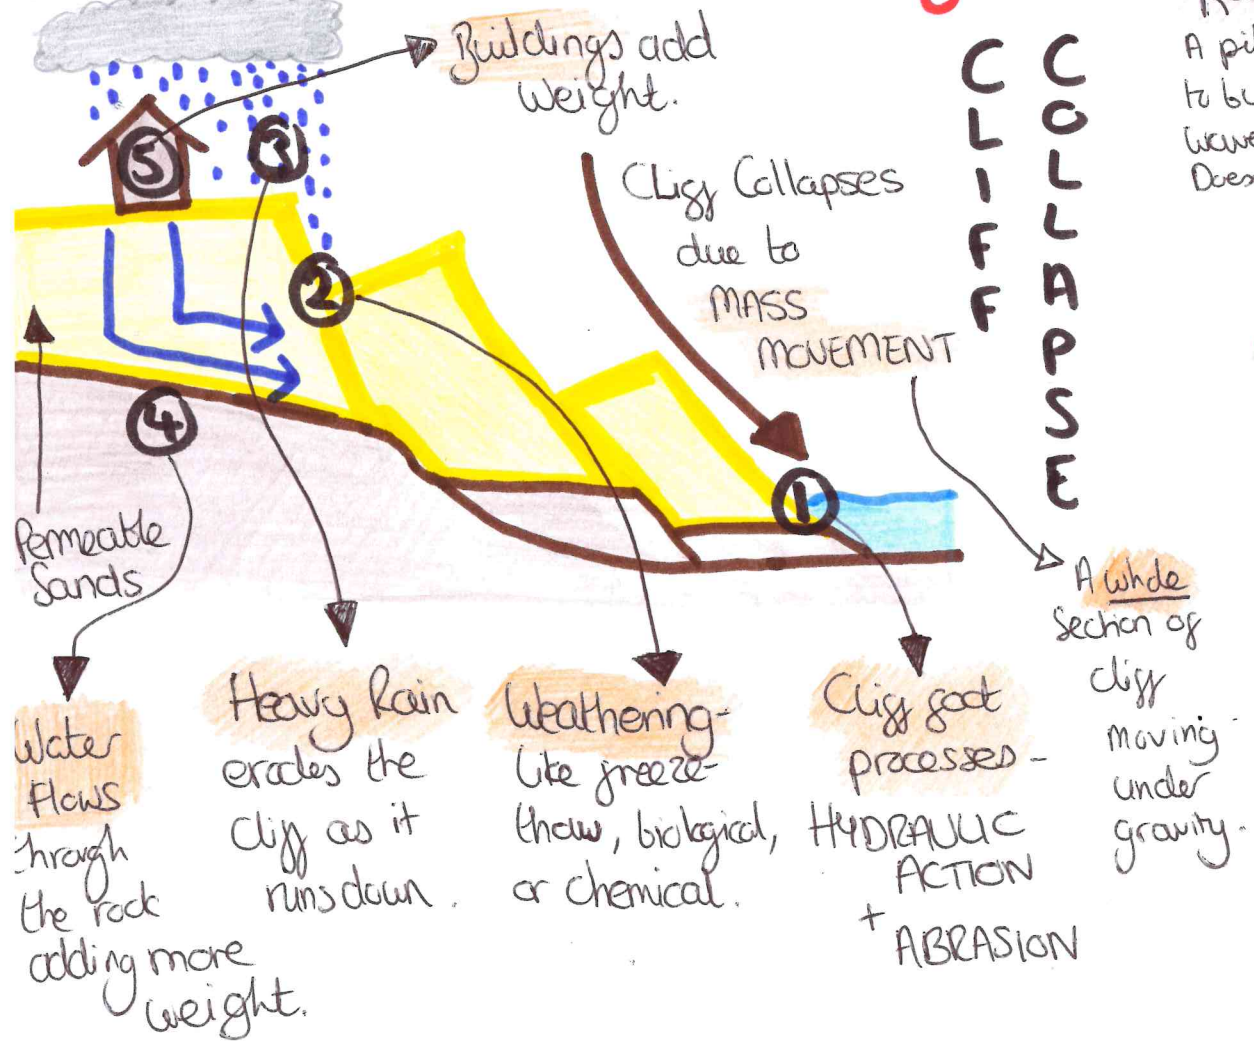 Buildings add
weight.
Cliff Collapses
due to
MASS
MOVEMENT
CLIFF
COLLAPSE
A
to
Does
5
3
2
4
1
Permeable
Sands
A whole
section of
cliff
moving
under
gravity.
Water
Flows
through
the rock
adding more
weight.
Heavy Rain
erodes the
cliff as it
runs down.
Weathering-
like freeze-
thaw, biological,
or chemical.
Cliff foot
processes-
HYDRAULIC
ACTION
+
ABRASION